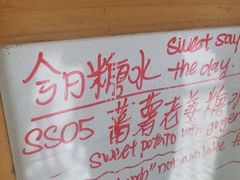 今月糖水 sweet soup
the day.
SS05 蕃薯老姜糖水
sweet potato with ginger
" not available